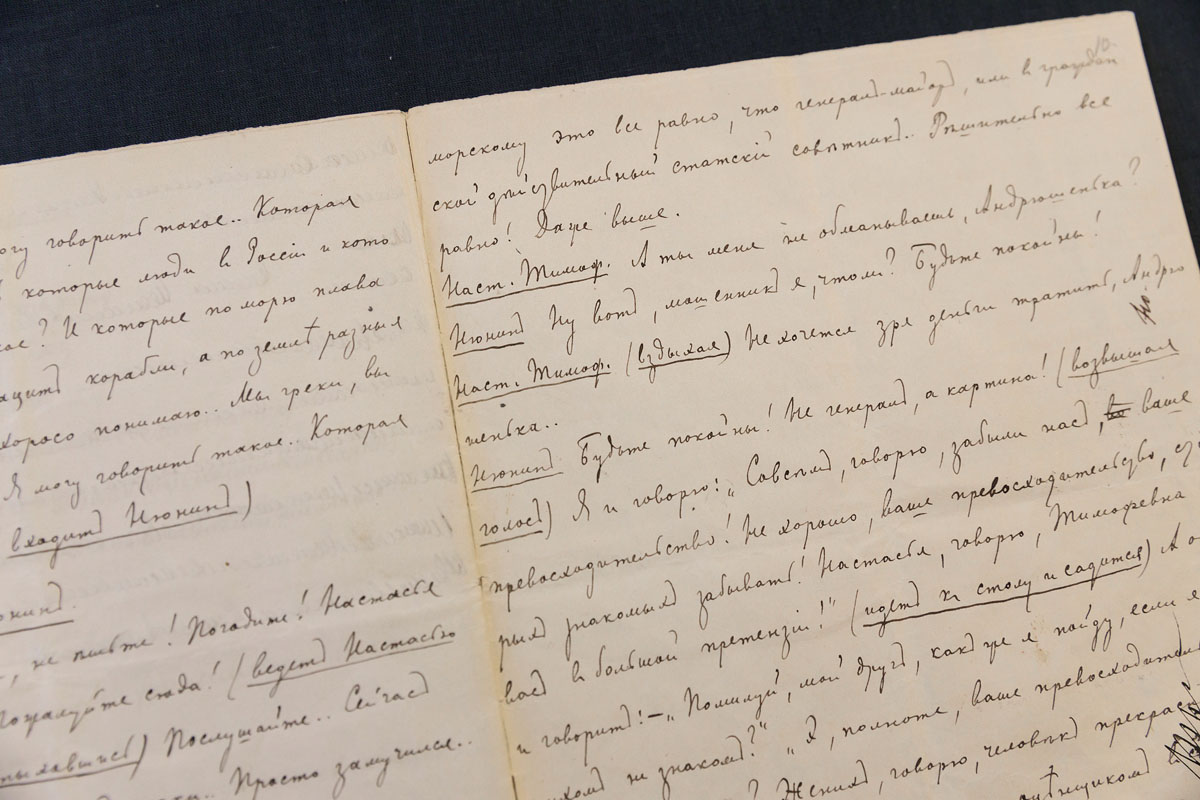 огу говорить такое.. Которая
которые люди въ Россіи и кото
кое? И которые по морю плава
ащитъ корабли, а по землѣ разныя
хоросо понимаю.. Мы греки, вы
Я могу говорить такое.. Которая
входитъ Нюнинъ)
юнинъ.
, не пейте! Погодите! Настасья
Пожалуйте сюда! (ведетъ Настасью
пыхавшись) Послушайте.. Сейчасъ
Просто замучился..
10.
морскому это все равно, что генералъ-маіоръ, или въ граждан
ской дѣйствительный статскій совѣтникъ.. Рѣшительно все
равно! Даже выше.
Наст. Тимоф. А ты меня не обманываешь, Андрюшенька?
Нюнинъ Ну вотъ, мошенникъ я, что ли? Будьте покойны!
Наст. Тимоф. (вздыхая) Не хочется зря деньги тратить, Андрю
шенька..
Нюнинъ Будьте покойны! Не генералъ, а картина! (возвышая
голосъ) Я и говорю: „Совсѣмъ, говорю, забыли насъ, ваше
превосходительство! Не хорошо, ваше превосходительство, ста
рыхъ знакомыхъ забывать! Настасья, говорю, Тимофевна на
васъ въ большой претензіи!" (идетъ къ столу и садится) А о
и говоритъ: — „Помилуй, мой другъ, какъ же я пойду, если я
хомъ не знакомъ?" „Э, полноте, ваше превосходитель
? Женихъ, говорю, человѣкъ прекрас